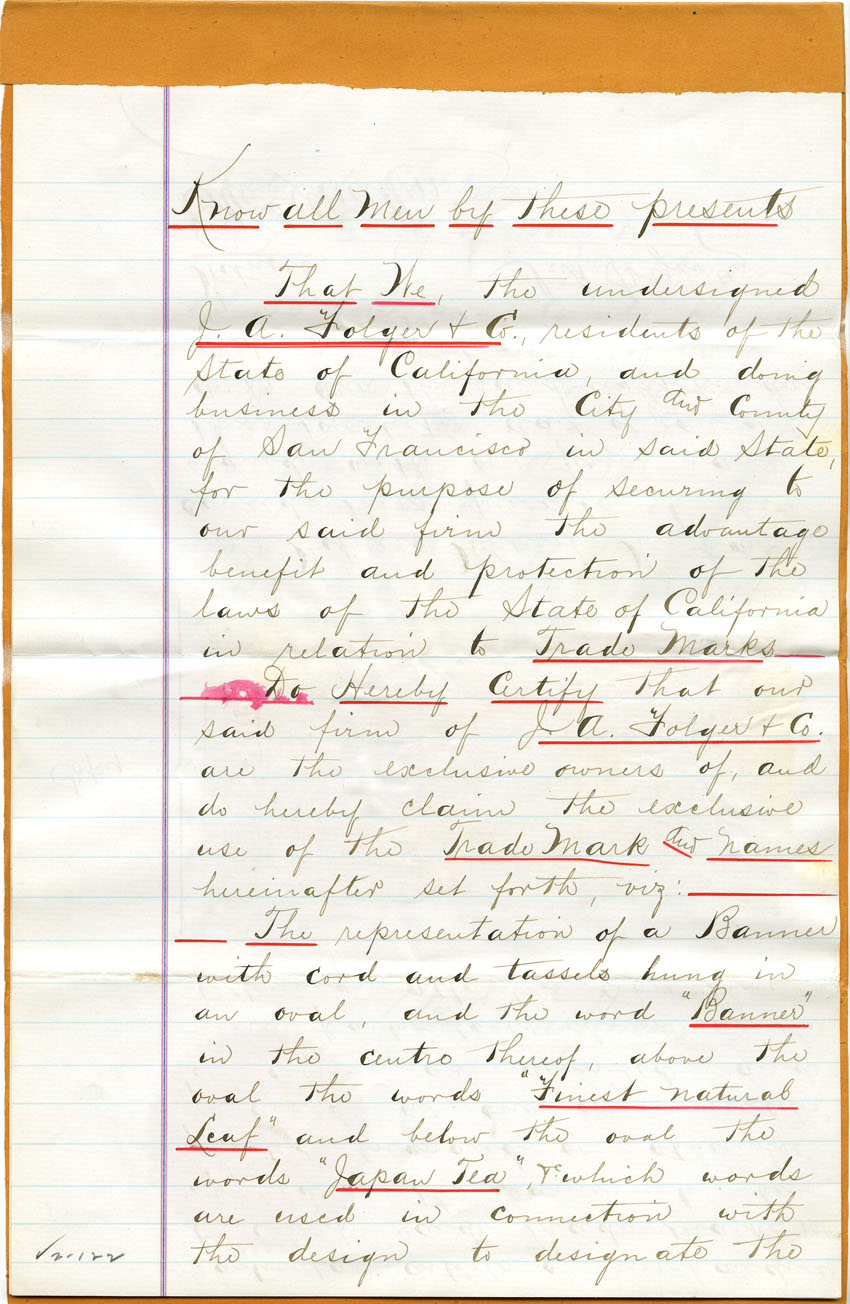 Know all Men by these presents
That We, the undersigned
J. A. Folger & Co., residents of the
State of California, and doing
business in the City and County
of San Francisco in said State,
for the purpose of securing to
our said firm the advantage
benefit and protection of the
laws of the State of California
in relation to Trade Marks
Do Hereby Certify that our
said firm of J. A. Folger & Co.
are the exclusive owners of, and
do hereby claim the exclusive
use of the Trade Mark and Names
hereinafter set forth, viz:
The representation of a Banner
with cord and tassels hung in
an oval, and the word "Banner"
in the centre thereof, above the
oval the words "Finest natural
Leaf" and below the oval the
words "Japan Tea", which words
are used in connection with
the design to designate the